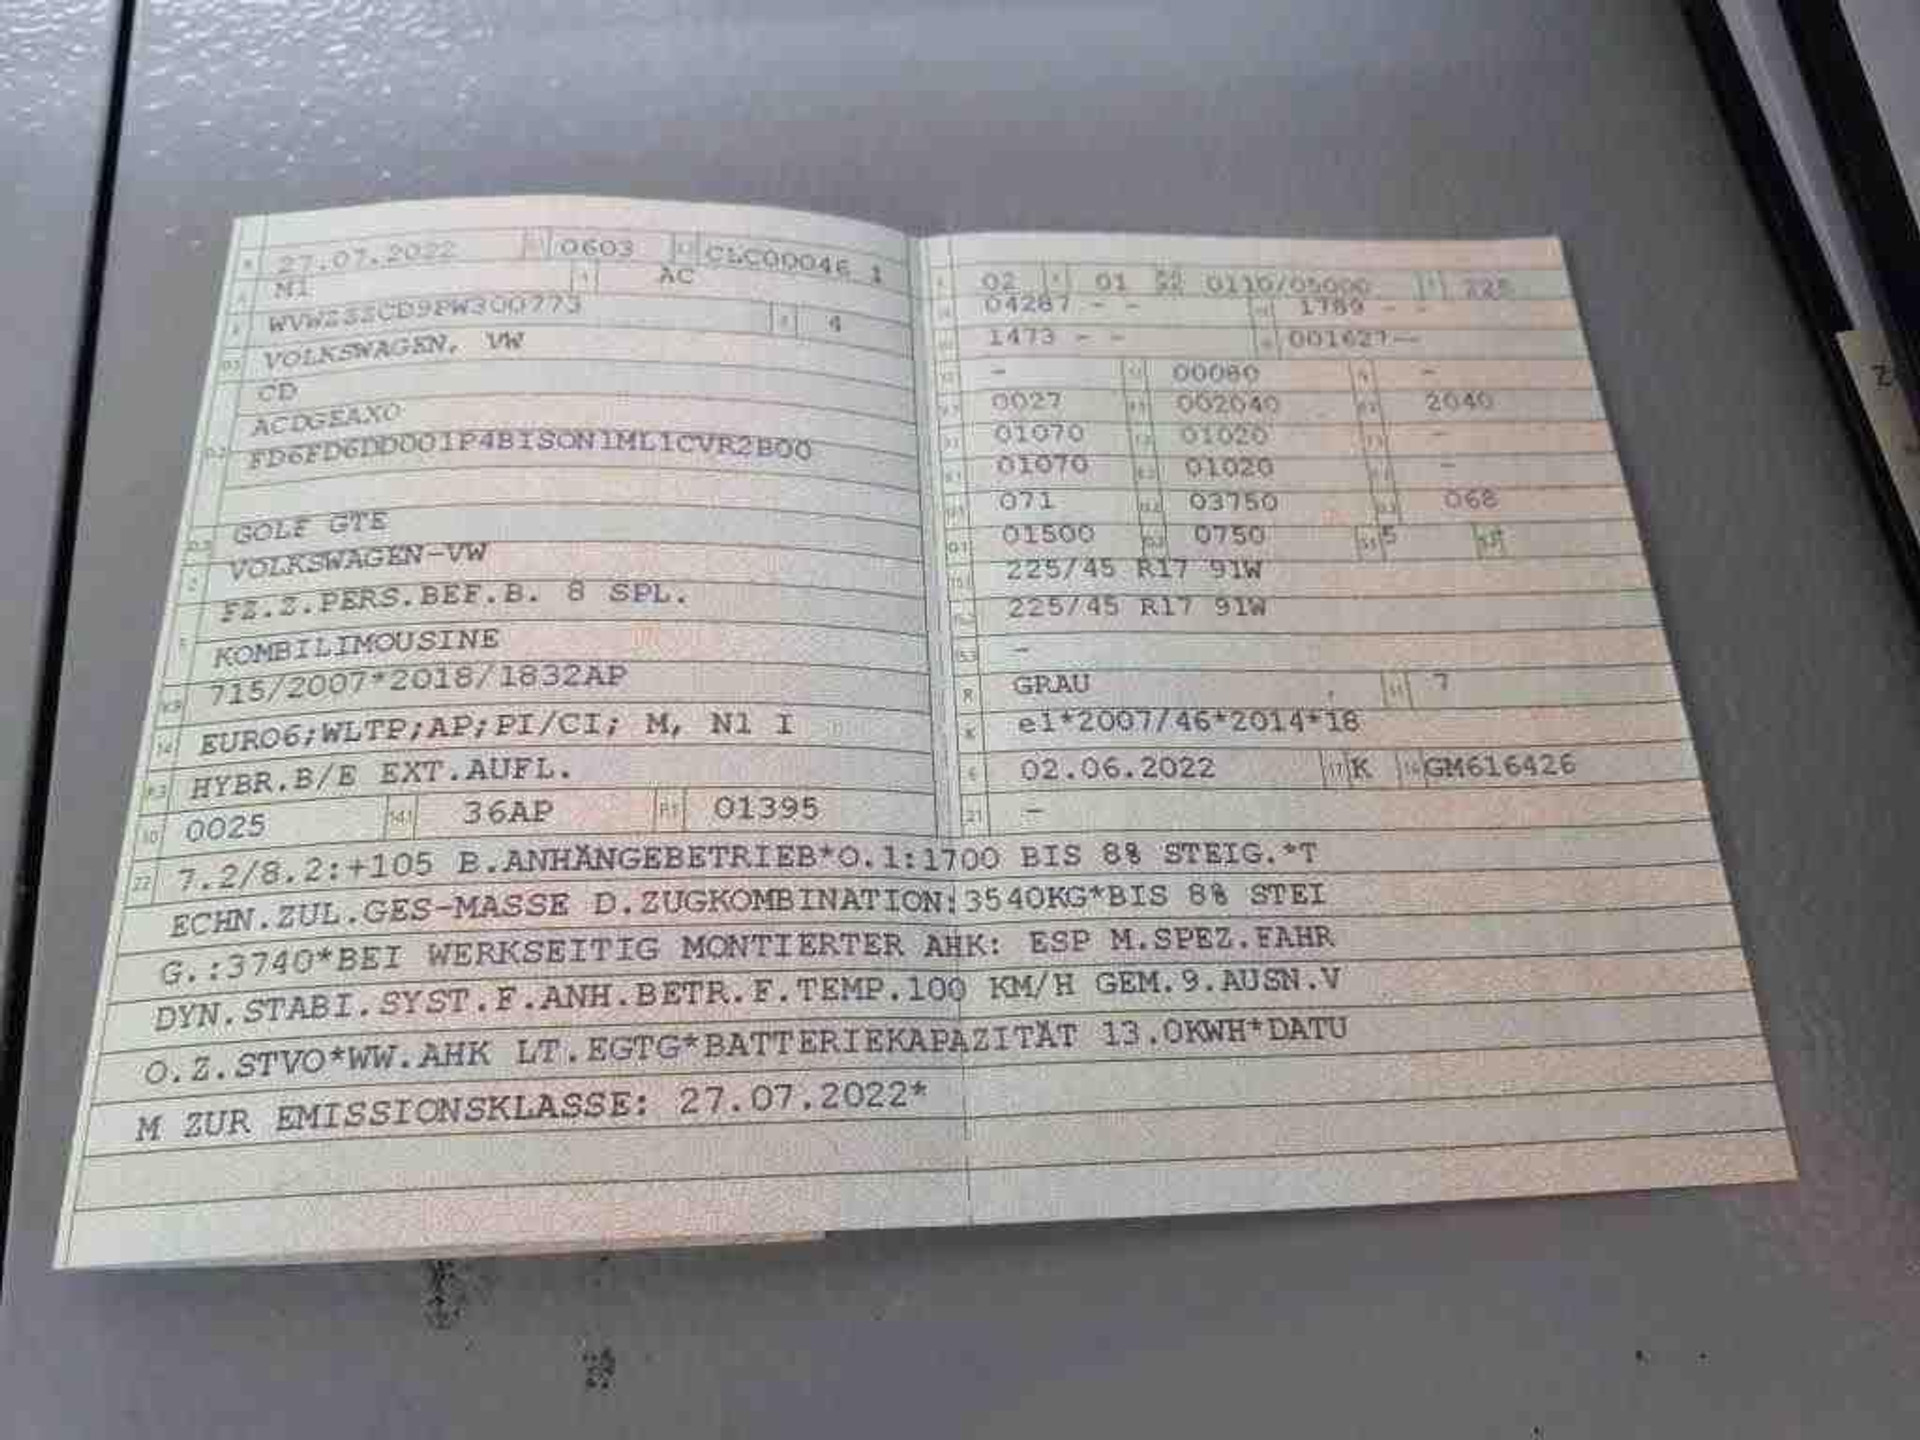 27.07.2022 0603 CLC00046 1
M1 AC
4
VOLKSWAGEN, VW
CD
ACDGEAX0
FD6FD6DD001P4BISON1ML1CVR2B00
GOLF GTE
VOLKSWAGEN-VW
FZ.Z.PERS.BEF.B. 8 SPL.
KOMBILIMOUSINE
715/2007*2018/1832AP
14 EURO6;WLTP;AP;PI/CI; M, N1 I
P.3 HYBR.B/E EXT.AUFL.
10 0025 14.1 36AP P.1 01395
02 01 0110/05000 225
04287 - - 1789 - -
1473 - - 001627--
- 00080 -
0027 002040 2040
01070 01020 -
01070 01020 -
071 03750 068
01500 0750 5
225/45 R17 91W
225/45 R17 91W
15.3 -
R GRAU 11 7
K e1*2007/46*2014*18
6 02.06.2022 17 K 16 GM616426
21 -
22 7.2/8.2:+105 B.ANHÄNGEBETRIEB*O.1:1700 BIS 8% STEIG.*T
ECHN.ZUL.GES-MASSE D.ZUGKOMBINATION:3540KG*BIS 8% STEI
G.:3740*BEI WERKSEITIG MONTIERTER AHK: ESP M.SPEZ.FAHR
DYN.STABI.SYST.F.ANH.BETR.F.TEMP.100 KM/H GEM.9.AUSN.V
O.Z.STVO*WW.AHK LT.EGTG*BATTERIEKAPAZITÄT 13.0KWH*DATU
M ZUR EMISSIONSKLASSE: 27.07.2022*